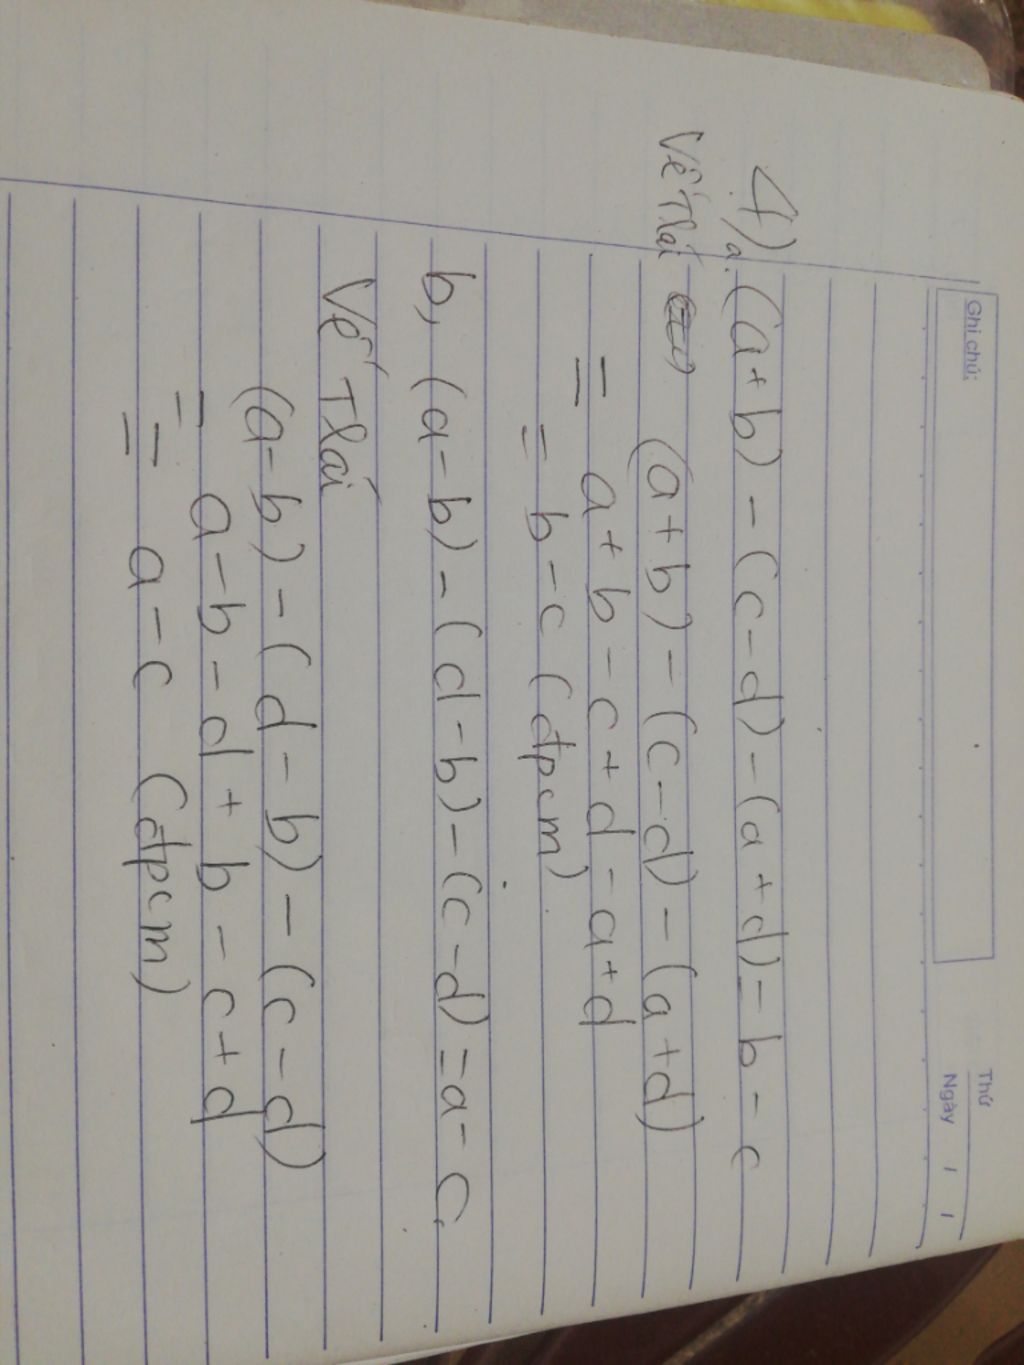 Ghi chú:
Thứ
Ngày / /
4) a. (a+b) - (c-d) - (a+d) = b - c
Vế Trái (a+b) - (c-d) - (a+d)
= a+b - c+d - a+d
= b - c (đpcm)
b, (a-b) - (d-b) - (c-d) = a - c.
Vế Trái
(a-b) - (d-b) - (c-d)
= a-b - d+b - c+d
= a - c (đpcm)